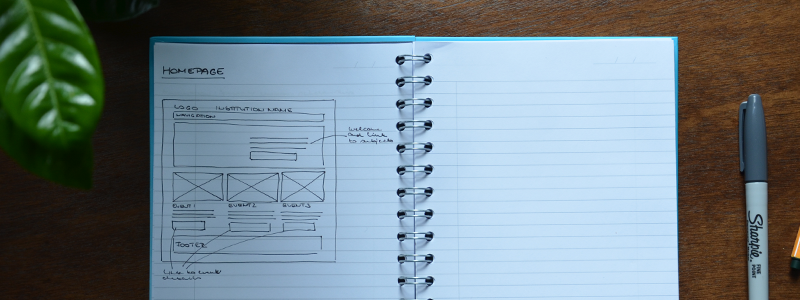 HOMEPAGE
LOGO INSTITUTION NAME
NAVIGATION
Welcome
and link
to subjects
EVENT 1 EVENT 2 EVENT 3
FOOTER
Link to event
Sharpie
FINE
POINT